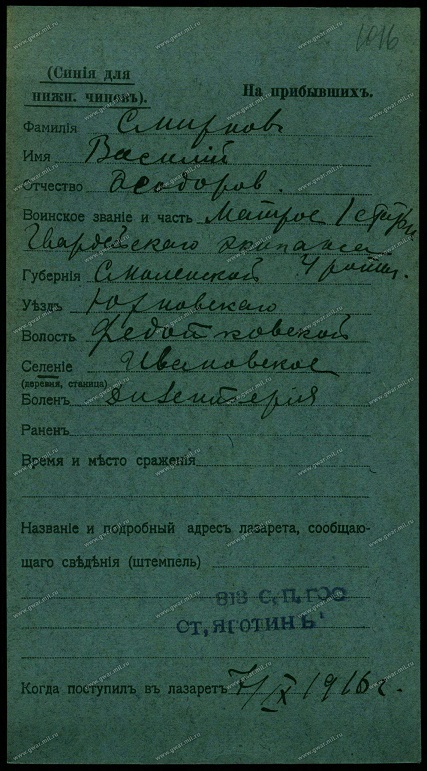 1016
(Синія для
нижн. чиновъ).
На прибывшихъ.
Фамилія Смирновъ
Имя Василій
Отчество Ѳеодоров.
Воинское званіе и часть Матрос 1 статьи
Гвардейскаго экипажа
4 роты.
Губернія Смоленской
Уѣздъ Юхновскаго
Волость Федотковской
Селеніе Ивановское
(деревня, станица)
Боленъ Дизентерія
Раненъ
Время и мѣсто сраженія
Названіе и подробный адресъ лазарета, сообщаю-
щаго свѣдѣнія (штемпель)
818 С. П. ГОС
СТ. ЯГОТИНЪ
Когда поступилъ въ лазаретъ 7/X 1916 г.
www.gwar.mil.ru